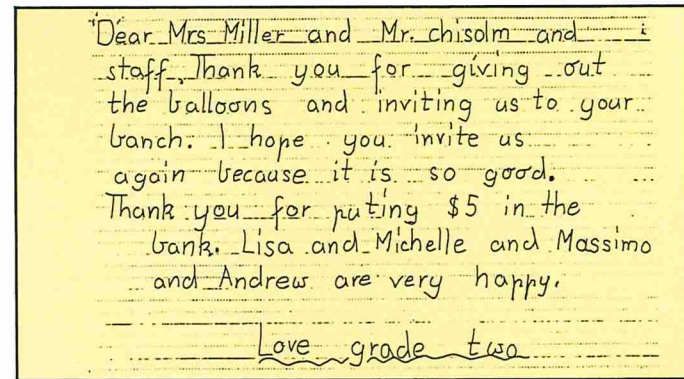 Dear Mrs Miller and Mr. chisolm and
staff, Thank you for giving out
the balloons and inviting us to your
branch. I hope you invite us
again because it is so good.
Thank you for puting $5 in the
bank. Lisa and Michelle and Massimo
and Andrew are very happy.
Love grade two